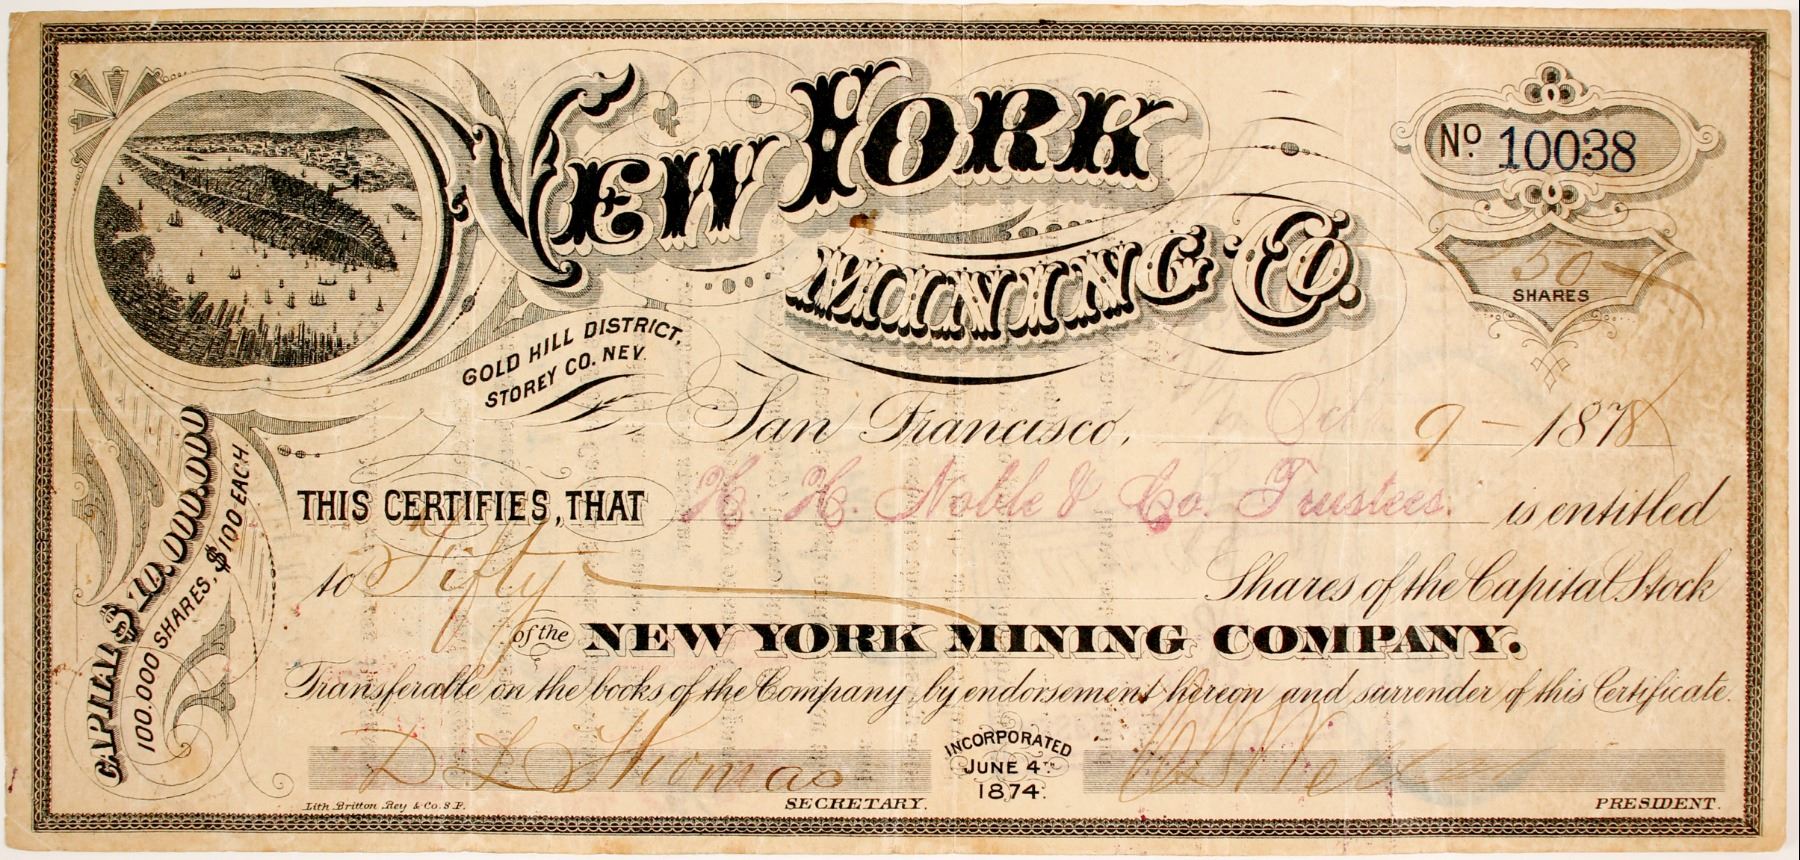 NEW YORK
MINING CO.
No. 10038
50
SHARES
GOLD HILL DISTRICT,
STOREY CO. NEV.
San Francisco, Oct 9 - 1878
CAPITAL $10.000.000
100.000 SHARES, $100 EACH.
THIS CERTIFIES, THAT H. H. Noble & Co. Trustees. is entitled
to Fifty Shares of the Capital Stock
of the NEW YORK MINING COMPANY.
Transferable on the books of the Company, by endorsement hereon and surrender of this Certificate.
D L Thomas
INCORPORATED
JUNE 4TH
1874.
Lith. Britton Rey & Co. S.F.
SECRETARY.
PRESIDENT.